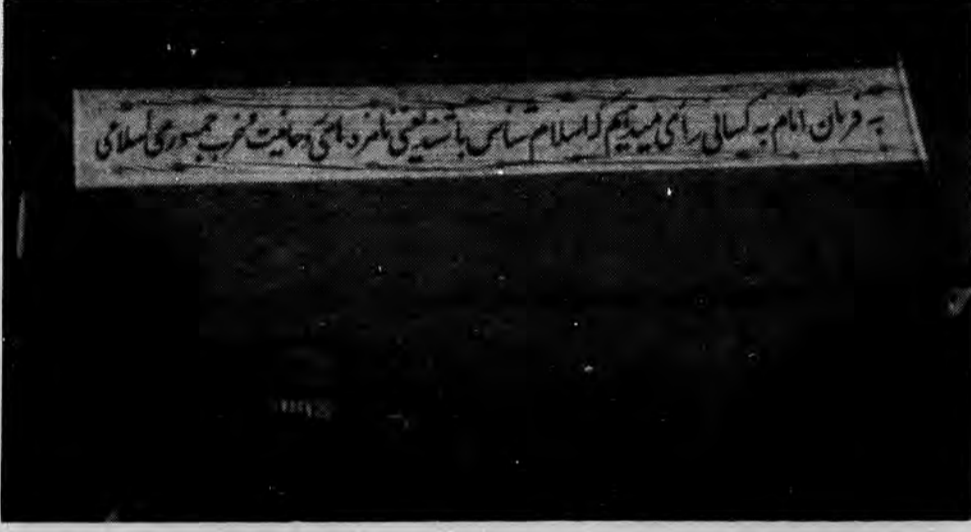 به فرمان امام به کسانی رأی میدهیم که اسلام شناس باشند یعنی نامزدهای روحانیت و حزب جمهوری اسلامی